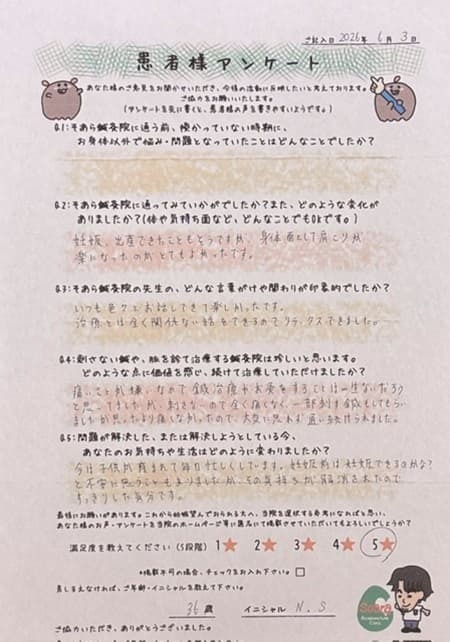 ご記入日 2026年 6月 3日
患者様アンケート
あなた様のご意見をお聞かせいただき、今後の活動に反映したいと考えております。
ご協力をお願いいたします。
(アンケートを先に書くと、患者様の声を書きやすいようです。)
Q1:そあら鍼灸院に通う前、授かっていない時期に、
お身体以外で悩み・問題となっていたことはどんなことでしたか?
Q2:そあら鍼灸院に通ってみていかがでしたか?また、どのような変化が
ありましたか?(体や気持ち面など、どんなことでもOKです。)
妊娠、出産できたこともそうですが、身体面として肩こりが
楽になったのがとてもよかったです。
Q3:そあら鍼灸院の先生の、どんな言葉がけや関わりが印象的でしたか?
いつも色々とお話してきて楽しかったです。
治療とは全く関係ない話をできるのでリラックスできました。
Q4:刺さない鍼や、脈を診て治療する鍼灸院は珍しいと思います。
どのような点に価値を感じ、続けて治療していただけましたか?
痛いことが嫌いなので鍼治療やお灸をすることは一生ないだろう
と思ってましたが、刺さないので全く痛くなく、一部刺す鍼もしてもらい
ましたが思ったより痛くなかったので、大丈夫に思わず続けられました。
Q5:問題が解決した、または解決しようとしている今、
あなたのお気持ちや生活はどのように変わりましたか?
今は子供が産まれて毎日忙しくしています。妊娠前は妊娠できるのかな?
と不安に思うこともありましたが、その気持ちが解消されたので
すっきりした気分です。
最後にお願いがあります。これから妊娠望んでおられる方へ、当院を選択する参考になればと思い、
あなた様のお声・アンケートを当院のホームページ等に匿名にて掲載させていただいてもよろしいでしょうか?
満足度を教えてください(5段階) 1★ 2★ 3★ 4★ 5★
*掲載不可の場合、チェックをお入れ下さい。□
差し支えなければ、ご年齢・イニシャルを教えて下さい。
36 歳 イニシャル N.S
ご協力いただき、ありがとうございました。
Soara
Acupuncture
Clinic